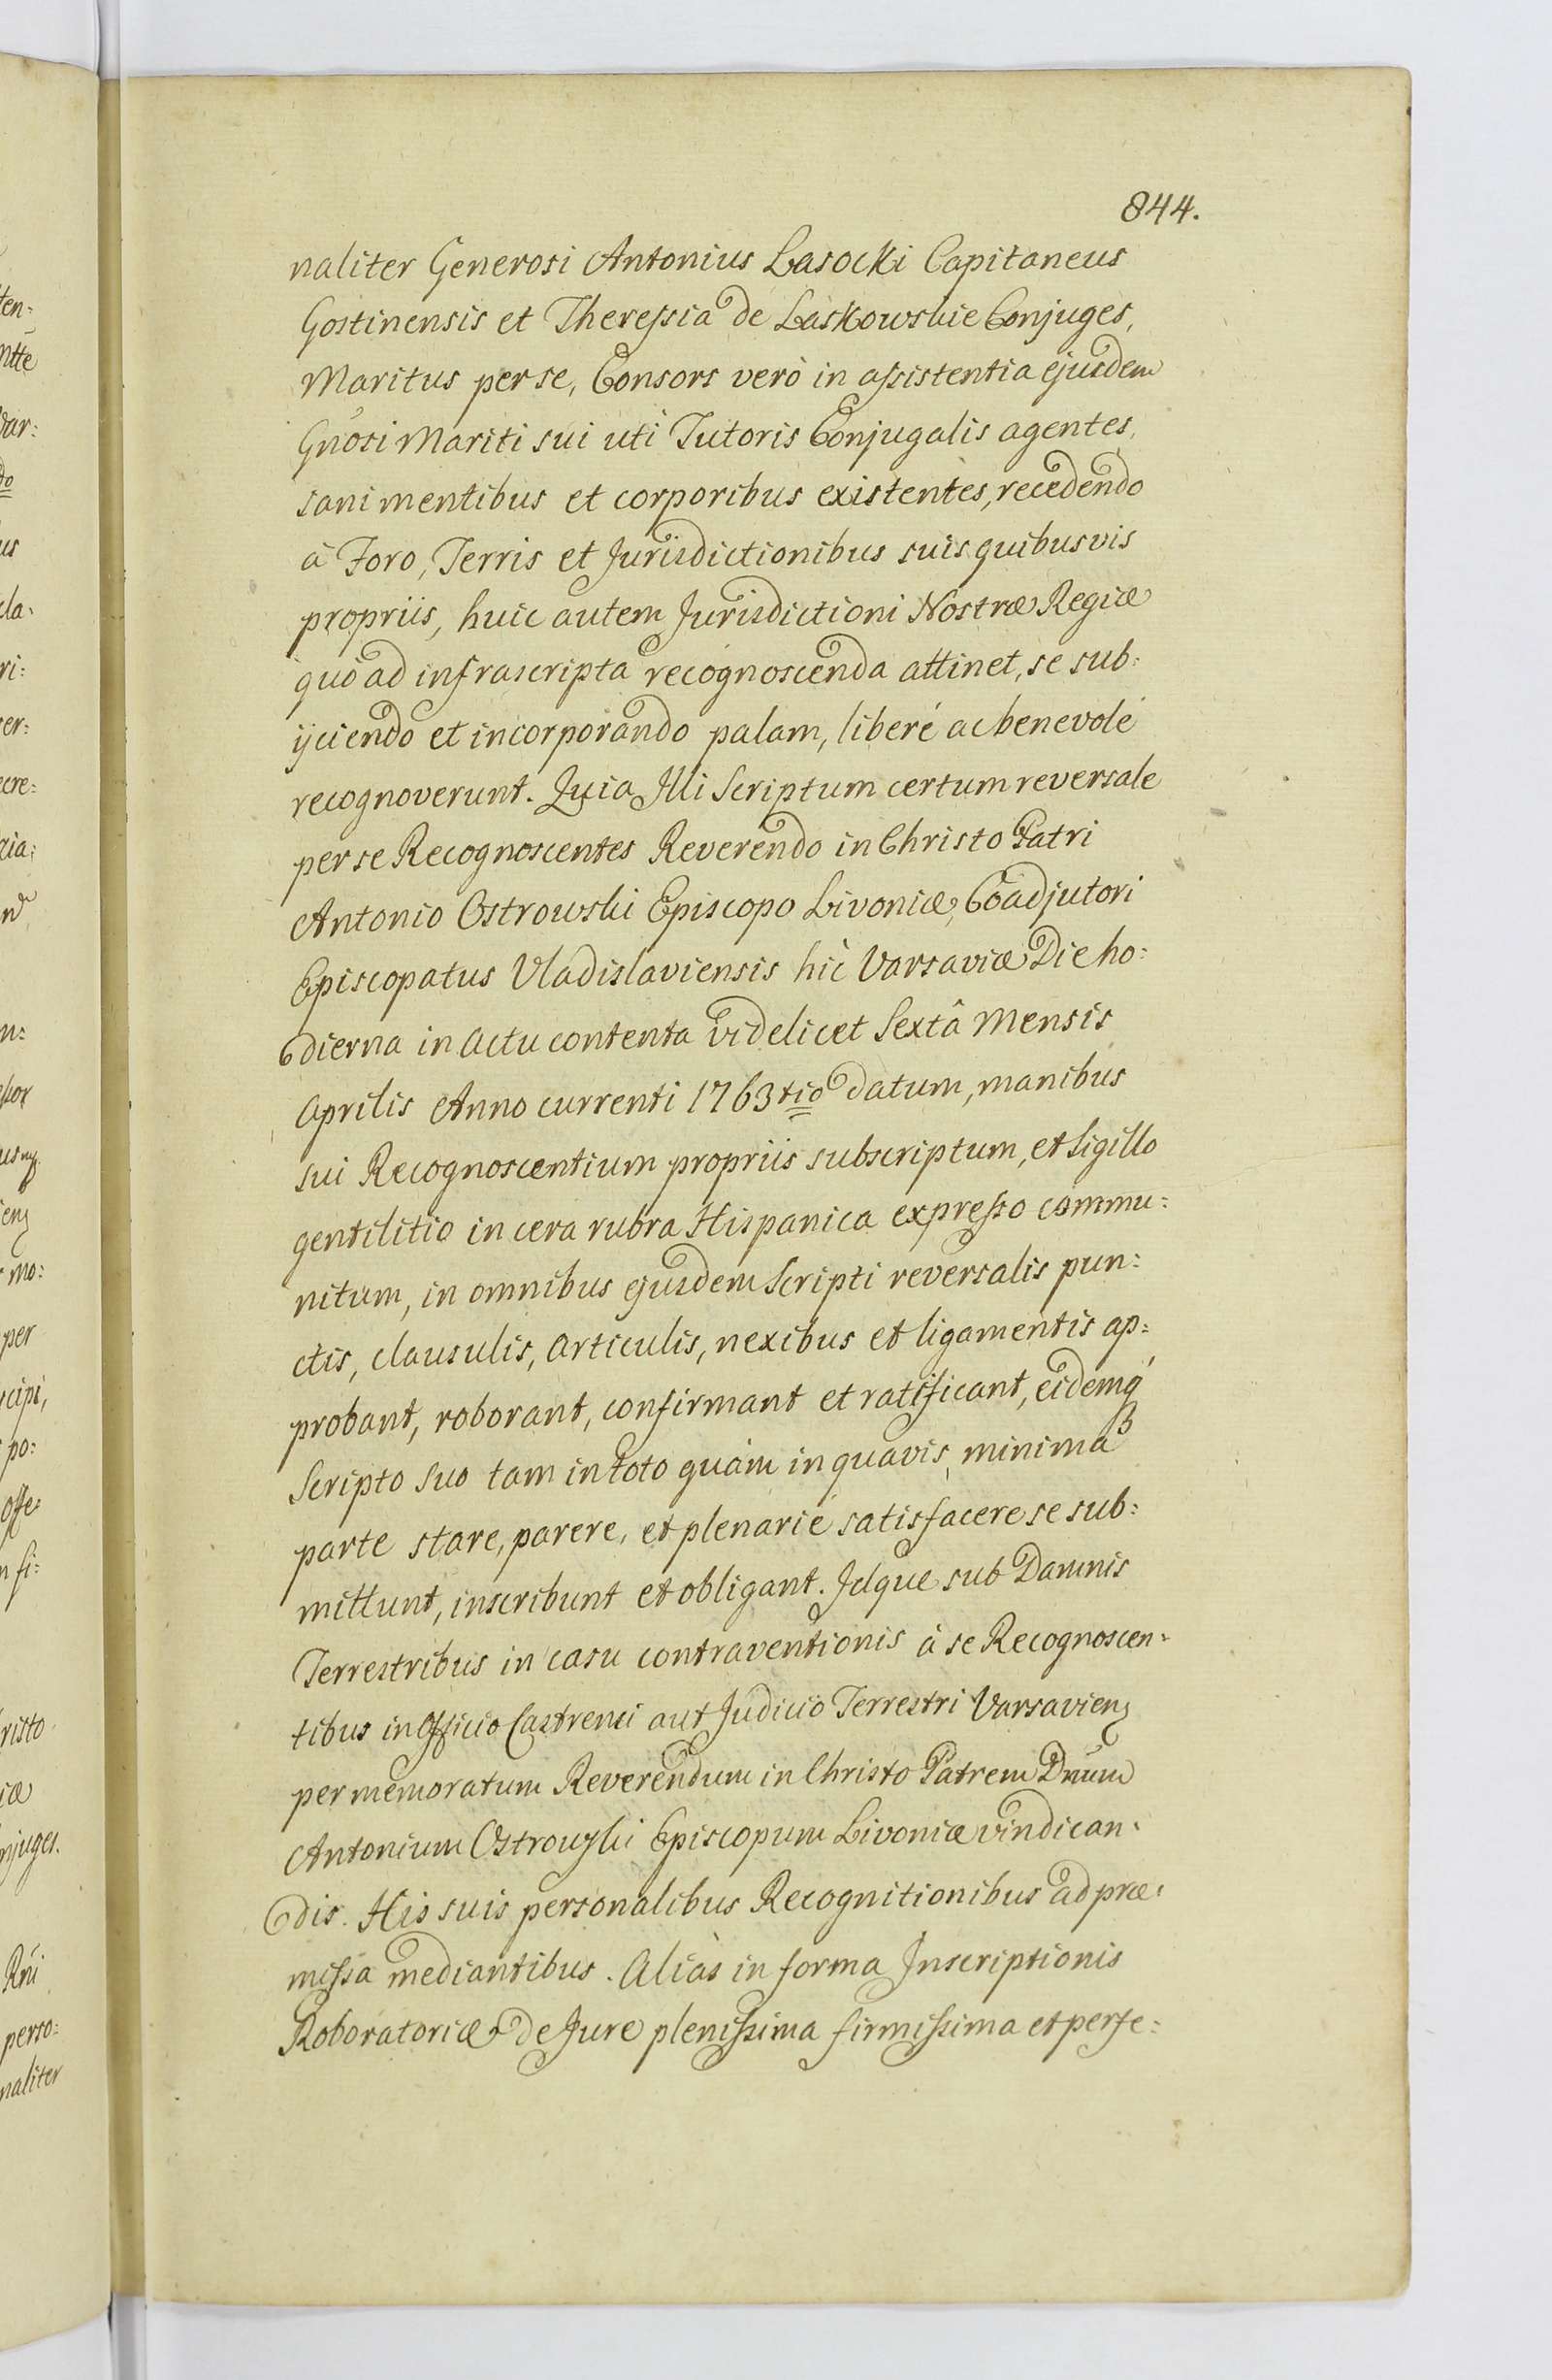 844.
naliter Generosi Antonius Lasocki Capitaneus
Gostinensis et Theressia de Laskowskie Conjuges,
Maritus per se, Consors verò in assistentia ejusdem
Gnōsi Mariti sui uti Tutoris Conjugalis agentes,
sani mentibus et corporibus existentes, recedendo
à Foro, Terris et Jurisdictionibus suis quibusvis
propriis, huic autem Jurisdictioni Nostræ Regiæ
quò ad infrascripta recognoscenda attinet, se sub:
ijciendo et incorporando palam, liberé ac benevolé
recognoverunt. Quia Illi Scriptum certum reversale
per se Recognoscentes Reverendo in Christo Patri
Antonio Ostrowski Episcopo Livoniæ, Coadjutori
Episcopatus Vladislaviensis hìc Varsaviæ Die ho:
dierna in Actu contenta videlicet Sextâ Mensis
Aprilis Anno currenti 1763tio datum, manibus
sui Recognoscentium propriis subscriptum, et Sigillo
gentilitio in cera rubra Hispanica expresso commu:
nitum, in omnibus ejusdem Scripti reversalis pun:
ctis, clausulis, articulis, nexibus et ligamentis ap:
probant, roborant, confirmant et ratificant, eidemq́
Scripto suo tam in toto quàm in quavis minima
parte stare, parere, et plenarié satisfacere se sub:
mittunt, inscribunt et obligant. Idque sub Damnis
Terrestribus in casu contraventionis à se Recognoscen:
tibus in Officio Castrensi aut Judicio Terrestri Varsavien̄
per memoratum Reverendum in Christo Patrem Dnūm
Antonium Ostrowski Episcopum Livoniæ vindican:
dis. His suis personalibus Recognitionibus ad præ:
missa mediantibus. Aliàs in forma Inscriptionis
Roboratoriæ de Jure plenissima firmissima et perfe: